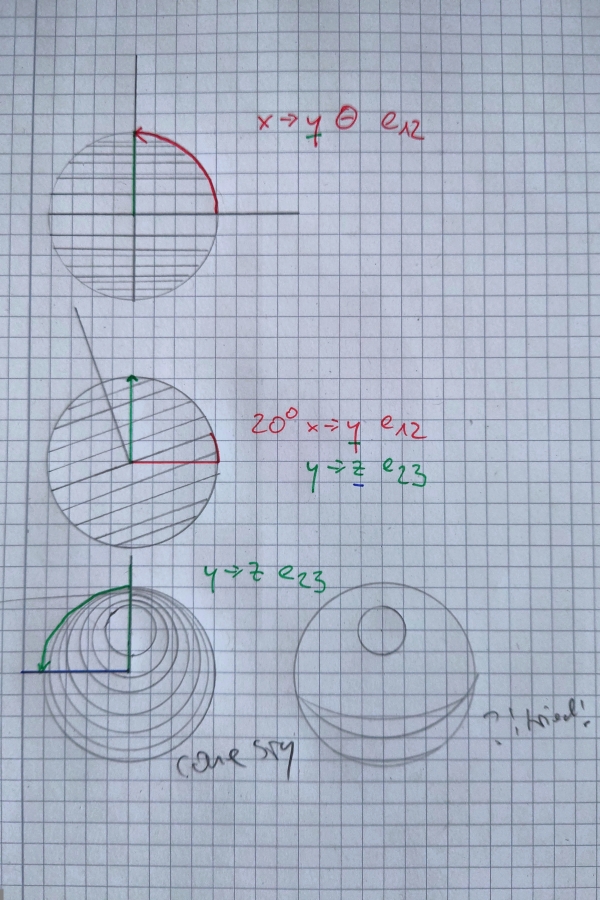 x → y Θ e12
20° x → y e12
y → z e23
y → z e23
?! tried!